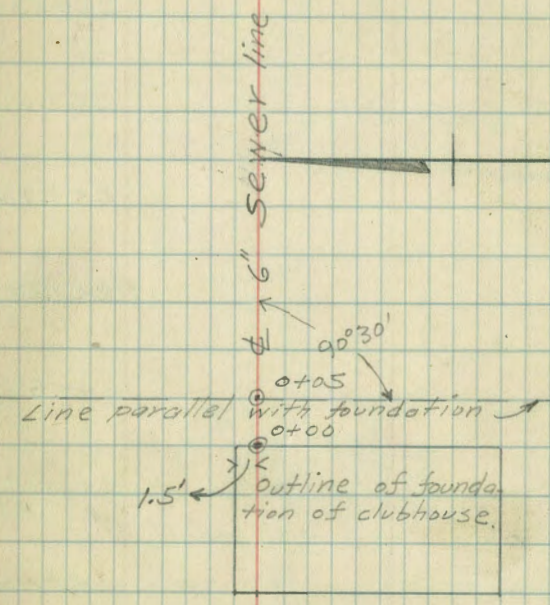 ℄ 6" sewer line
90°30'
0+05
Line parallel with foundation
0+00
1.5'
outline of founda-
tion of clubhouse.